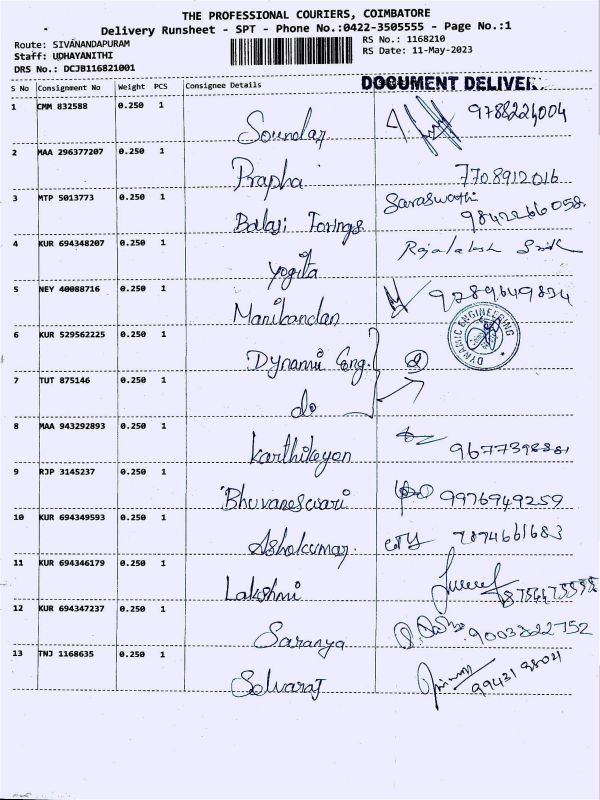 THE PROFESSIONAL COURIERS, COIMBATORE
Delivery Runsheet - SPT - Phone No.:0422-3505555 - Page No.:1
Route: SIVANANDAPURAM
RS No.: 1168210
Staff: UDHAYANITHI
RS Date: 11-May-2023
DRS No.: DCJB116821001
DOCUMENT DELIVER
S No Consignment No Weight PCS Consignee Details
1 CMM 832588 0.250 1
Soundar 9788224004
2 MAA 296377207 0.250 1
Prapha 7708912016
3 MTP 5013773 0.250 1
Saraswathi
Balaji Torings 9842266058
4 KUR 694348207 0.250 1
Yogita
5 NEY 40088716 0.250 1
Manikandan 9289649834
6 KUR 529562225 0.250 1
Dynami Eng.
DYNAMIC ENGINEERING
7 TUT 875146 0.250 1
do
8 MAA 943292893 0.250 1
Karthikeyan
9 RJP 3145237 0.250 1
Bhuvaneswari 9976949259
10 KUR 694349593 0.250 1
Ashokumar 7874661683
11 KUR 694346179 0.250 1
Lakshmi
12 KUR 694347237 0.250 1
Saranya 9003822752
13 TNJ 1168635 0.250 1
Selvaraj